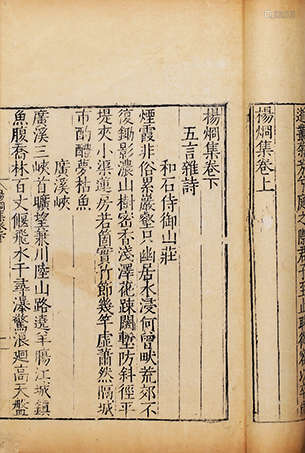 揚烱集卷上
揚烱集卷下
五言雜詩
和石侍御山莊
煙霞非俗累巖壑只幽居水浸何曾畎荒郊不
復鋤影濃山樹密香淺澤花疎闊塹防斜徑平
堤夾小渠蓮房若箇實竹節幾竿虛蕭然隔城
市酌醴焚枯魚
廣溪峽
廣溪三峽首曠望兼川陸山路遶羊腸江城鎮
魚腹喬林百丈偃飛水千尋瀑驚浪迴高天盤